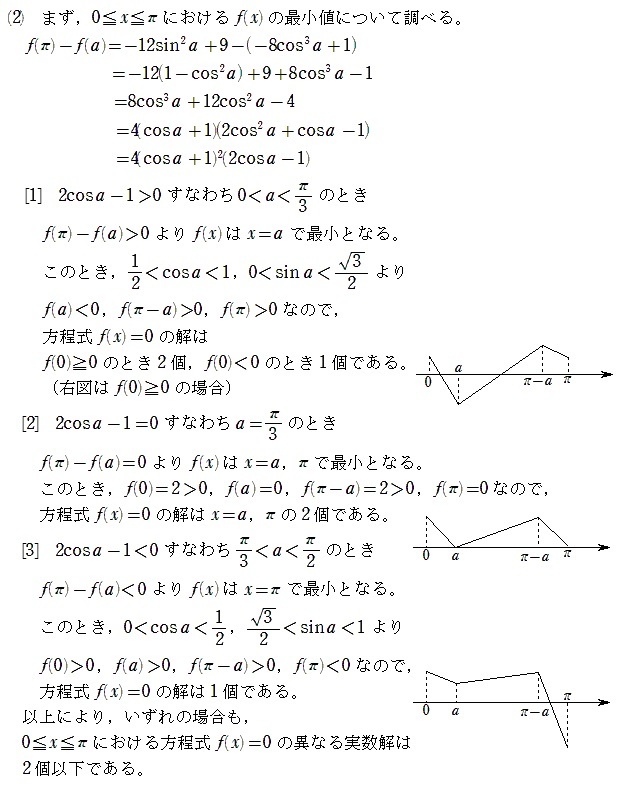 (2) まず，0≦x≦π における f(x) の最小値について調べる。
f(π)−f(a)=−12sin²a+9−(−8cos³a+1)
=−12(1−cos²a)+9+8cos³a−1
=8cos³a+12cos²a−4
=4(cosa+1)(2cos²a+cosa−1)
=4(cosa+1)²(2cosa−1)
[1] 2cosa−1>0 すなわち 0<a<π/3 のとき
f(π)−f(a)>0 より f(x) は x=a で最小となる。
このとき，1/2<cosa<1，0<sina<√3/2 より
f(a)<0，f(π−a)>0，f(π)>0 なので，
方程式 f(x)=0 の解は
f(0)≧0 のとき 2 個，f(0)<0 のとき 1 個である。
（右図は f(0)≧0 の場合）
0 a π−a π
[2] 2cosa−1=0 すなわち a=π/3 のとき
f(π)−f(a)=0 より f(x) は x=a，π で最小となる。
このとき，f(0)=2>0，f(a)=0，f(π−a)=2>0，f(π)=0 なので，
方程式 f(x)=0 の解は x=a，π の 2 個である。
0 a π−a π
[3] 2cosa−1<0 すなわち π/3<a<π/2 のとき
f(π)−f(a)<0 より f(x) は x=π で最小となる。
このとき，0<cosa<1/2，√3/2<sina<1 より
f(0)>0，f(a)>0，f(π−a)>0，f(π)<0 なので，
方程式 f(x)=0 の解は 1 個である。
0 a π−a π
以上により，いずれの場合も，
0≦x≦π における方程式 f(x)=0 の異なる実数解は
2 個以下である。